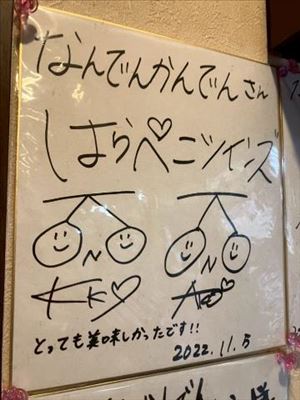 なんでんかんでんさん
はらぺこツインズ
とっても美味しかったです!!
2022.11.5